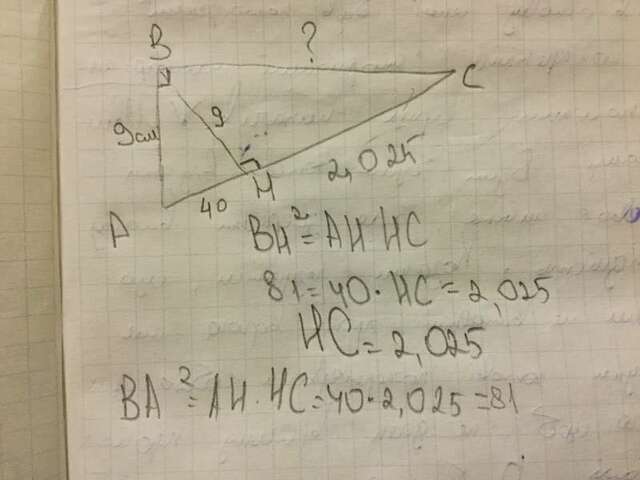 B
?
C
9см
9
H
2,025
A
40
BH² = AH HC
81 = 40 · HC = 2,025
HC = 2,025
BA² = AH · HC = 40 · 2,025 = 81